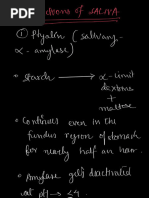 Functions of SALIVA
① Ptyalin (salivary
α-amylase)
• starch → α-limit
dextrins
+
maltose
• Continues even in the
fundus region of stomach
for nearly half an hour.
• Amylase gets deactivated
at pH → <4